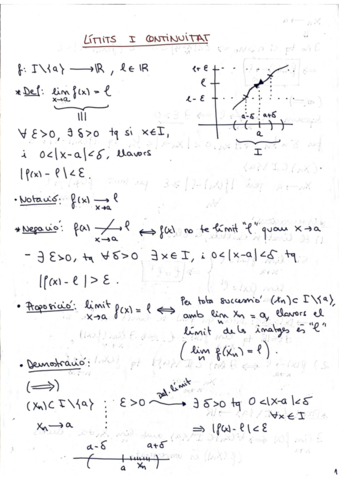 LÍMITS I CONTINUÏTAT
f: I\{a} → ℝ, l ∈ ℝ
* Def: lim f(x) = l
x→a
|||
∀ ε>0, ∃ δ>0 tq si x∈I,
i 0<|x-a|<δ, llavors
|f(x) - l| < ε.
l+ε
l
l-ε
a-δ a+δ
a
I
· Notació: f(x) → l
x→a
* Negació: f(x) ↛ l ⟺ f(x) no té límit "l" quan x→a
x→a
- ∃ ε>0, tq ∀ δ>0 ∃ x∈I, i 0<|x-a|<δ tq
|f(x) - l| > ε.
· Proposició: límit f(x) = l ⟺ Per tota successió (xn) ⊂ I\{a},
x→a
amb lim xn = a, llavors el
n
límit de les imatges és "l"
(lim f(xn) = l).
· Demostració:
(⟹)
(xn) ⊂ I\{a} ε>0 Def. límit → ∃ δ>0 tq 0<|x-a|<δ
∀x∈I
xn → a ⇒ |f(x) - l| < ε
a-δ a+δ
a xn
1